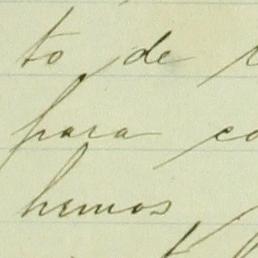 to de
para co
hemos